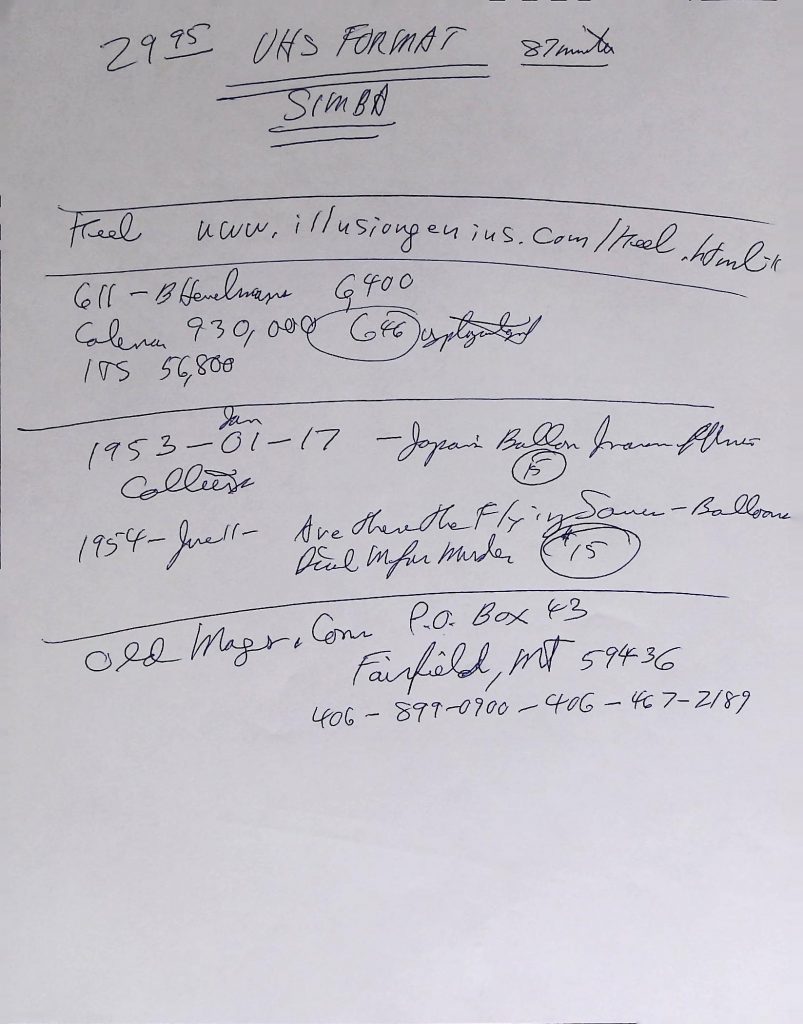 29 95 VHS FORMAT 87 minutes
SIMBA
Keel www.illusiongenius.com/Keel.html
611 - B Heuvelmans G400
930,000 G46
ITS 56,800
Jan
1953-01-17 - Japan's Balloon Invasion
15
Collier's
1954 - June 11 - Are there the Flying Saucer - Balloons
Dial M for Murder $15
Old Mags.Com P.O. Box 43
Fairfield, MT 59436
406-899-0900-406-467-2189